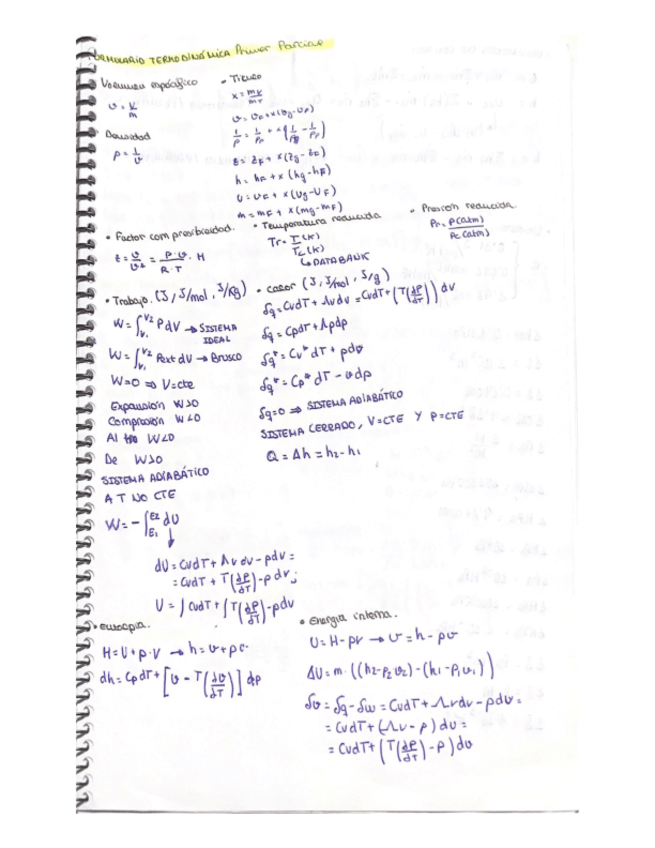 FORMULARIO TERMODINÁMICA Primer Parcial
• Volumen específico
v = V/m
• Densidad
ρ = 1/v
• Título
x = mv/mT
v = vF + x(vg - vF)
1/ρ = 1/ρF + x(1/ρg - 1/ρF)
z = zF + x(zg - zF)
h = hF + x(hg - hF)
U = UF + x(Ug - UF)
m = mF + x(mg - mF)
• Factor compresibilidad.
z = v/v* = P·v/R·T · M
• Temperatura reducida
Tr = T(K)/Tc(K)
↳ DATABANK
• Presión reducida.
Pr = P(atm)/Pc(atm)
• Trabajo. (J, J/mol, J/kg)
W = ∫V1V2 P dV → SISTEMA IDEAL
W = ∫V1V2 Pext dV → Brusco
W = 0 ⇒ V = cte
Expansión W>0
Compresión W<0
Al W<0
De W>0
SISTEMA ADIABÁTICO
A T NO CTE
W = -∫E1E2 dU
↓
dU = CvdT + Λv dv - pdv =
= CvdT + T(dP/dT) - p dv;
U = ∫CvdT + ∫T(dP/dT) - pdv
• calor (J, J/mol, J/g)
δq = CvdT + Λvdv = CvdT + (T(dP/dT)) dv
δq = CpdT + Λpdp
δq* = Cv* dT + pdv
δq* = Cp* dT - vdp
δq = 0 ⇒ SISTEMA ADIABÁTICO
SISTEMA CERRADO, V=CTE Y P=CTE
Q = Δh = h2 - h1
• entalpia.
H = U + p·V → h = u + pv
dh = CpdT + [v - T(dv/dT)] dp
• Energía interna.
U = H - pV → u = h - pv
ΔU = m · ((h2 - p2v2) - (h1 - p1v1))
δu = δq - δw = CvdT + Λvdv - pdv =
= CvdT + (Λv - p) dv =
= CvdT + (T(dP/dT) - p) dv